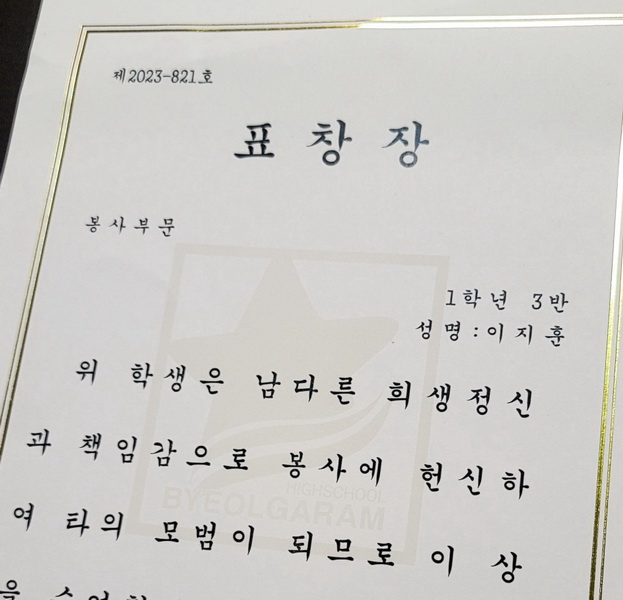 제2023-821호
표창장
봉사부문
1학년 3반
성명:이지훈
위 학생은 남다른 희생정신
과 책임감으로 봉사에 헌신하
여 타의 모범이 되므로 이 상
을
HIGHSCHOOL
BYEOLGARAM